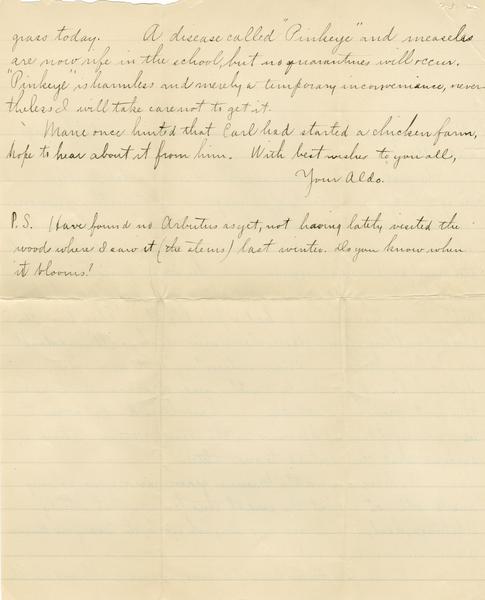 grass today. A disease called "Pinkeye" and measles
are now rife in the school, but no quarantines will occur.
"Pinkeye" is harmless and merely a temporary inconvenience, never-
theless I will take care not to get it.
Marie once hinted that Carl had started a chicken farm,
hope to hear about it from him. With best wishes to you all,
Your Aldo.
P.S. Have found no Arbutus as yet, not having lately visited the
woods where I saw it (the stems) last winter. Do you know when
it blooms?